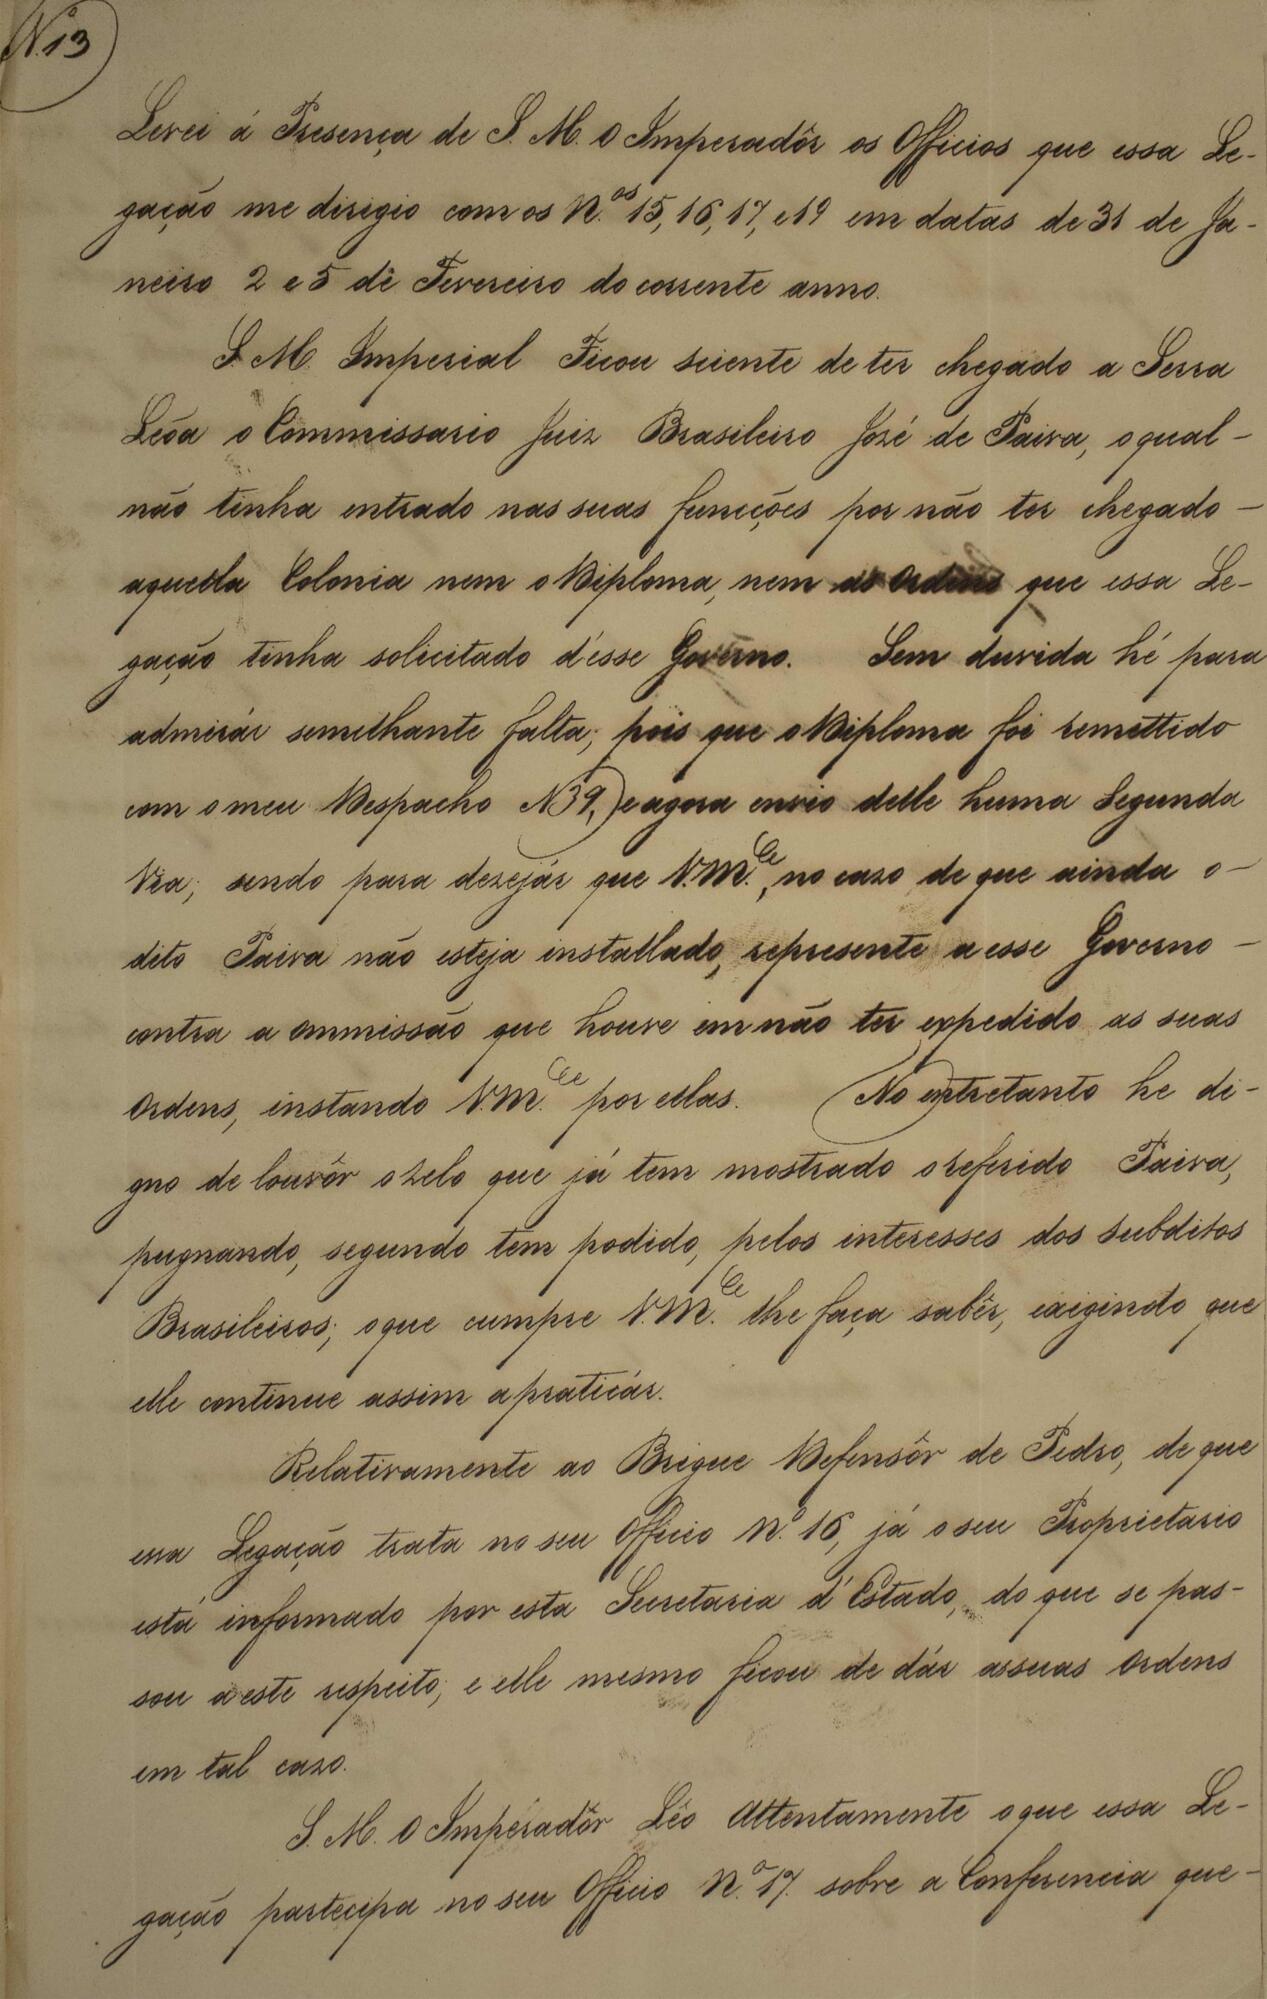 N.º 13
Levei á Presença de S. M. O Imperadôr os Officios que essa Le-
gação me dirigio com os N.os 15, 16, 17, e 19 em datas de 31 de Ja-
neiro 2 e 5 de Fevereiro do corrente anno.
S. M. Imperial Ficou sciente de ter chegado a Serra
Leôa o Commissario Juiz Brasileiro José de Paiva, o qual-
não tinha entrado nas suas funcções por não ter chegado-
aquella Colonia nem o Diploma, nem as Ordens que essa Le-
gação tinha solicitado d'esse Governo. Sem duvida hé para
admirár semelhante falta; pois que o Diploma foi remettido
com o meu Despacho N 39, e agora envio delle huma Segunda
Via; sendo para dezejár que V.M.ce, no cazo de que ainda o-
dito Paiva não esteja installado, represente a esse Governo-
contra a ommissão que houve em não ter expedido as suas
Ordens, instando V.M.ce por ellas. No entretanto he di-
gno de louvôr o zelo que já tem mostrado o referido Paiva,
pugnando, segundo tem podido, pelos interesses dos Subditos
Brasileiros; o que cumpre V.M.ce lhe faça sabêr, exigindo que
elle continue assim a praticár.
Relativamente ao Brigue Defensôr de Pedro, de que
essa Legação trata no seu Officio N.º 16, já o seu Proprietario
está informado por esta Secretaria d'Estado, do que se pas-
sou a este respeito, e elle mesmo ficou de dár as suas Ordens
em tal cazo.
S. M. O Imperadôr Léo Attentamente o que essa Le-
gação partecipa no seu Officio N.º 17. sobre a Conferencia que-